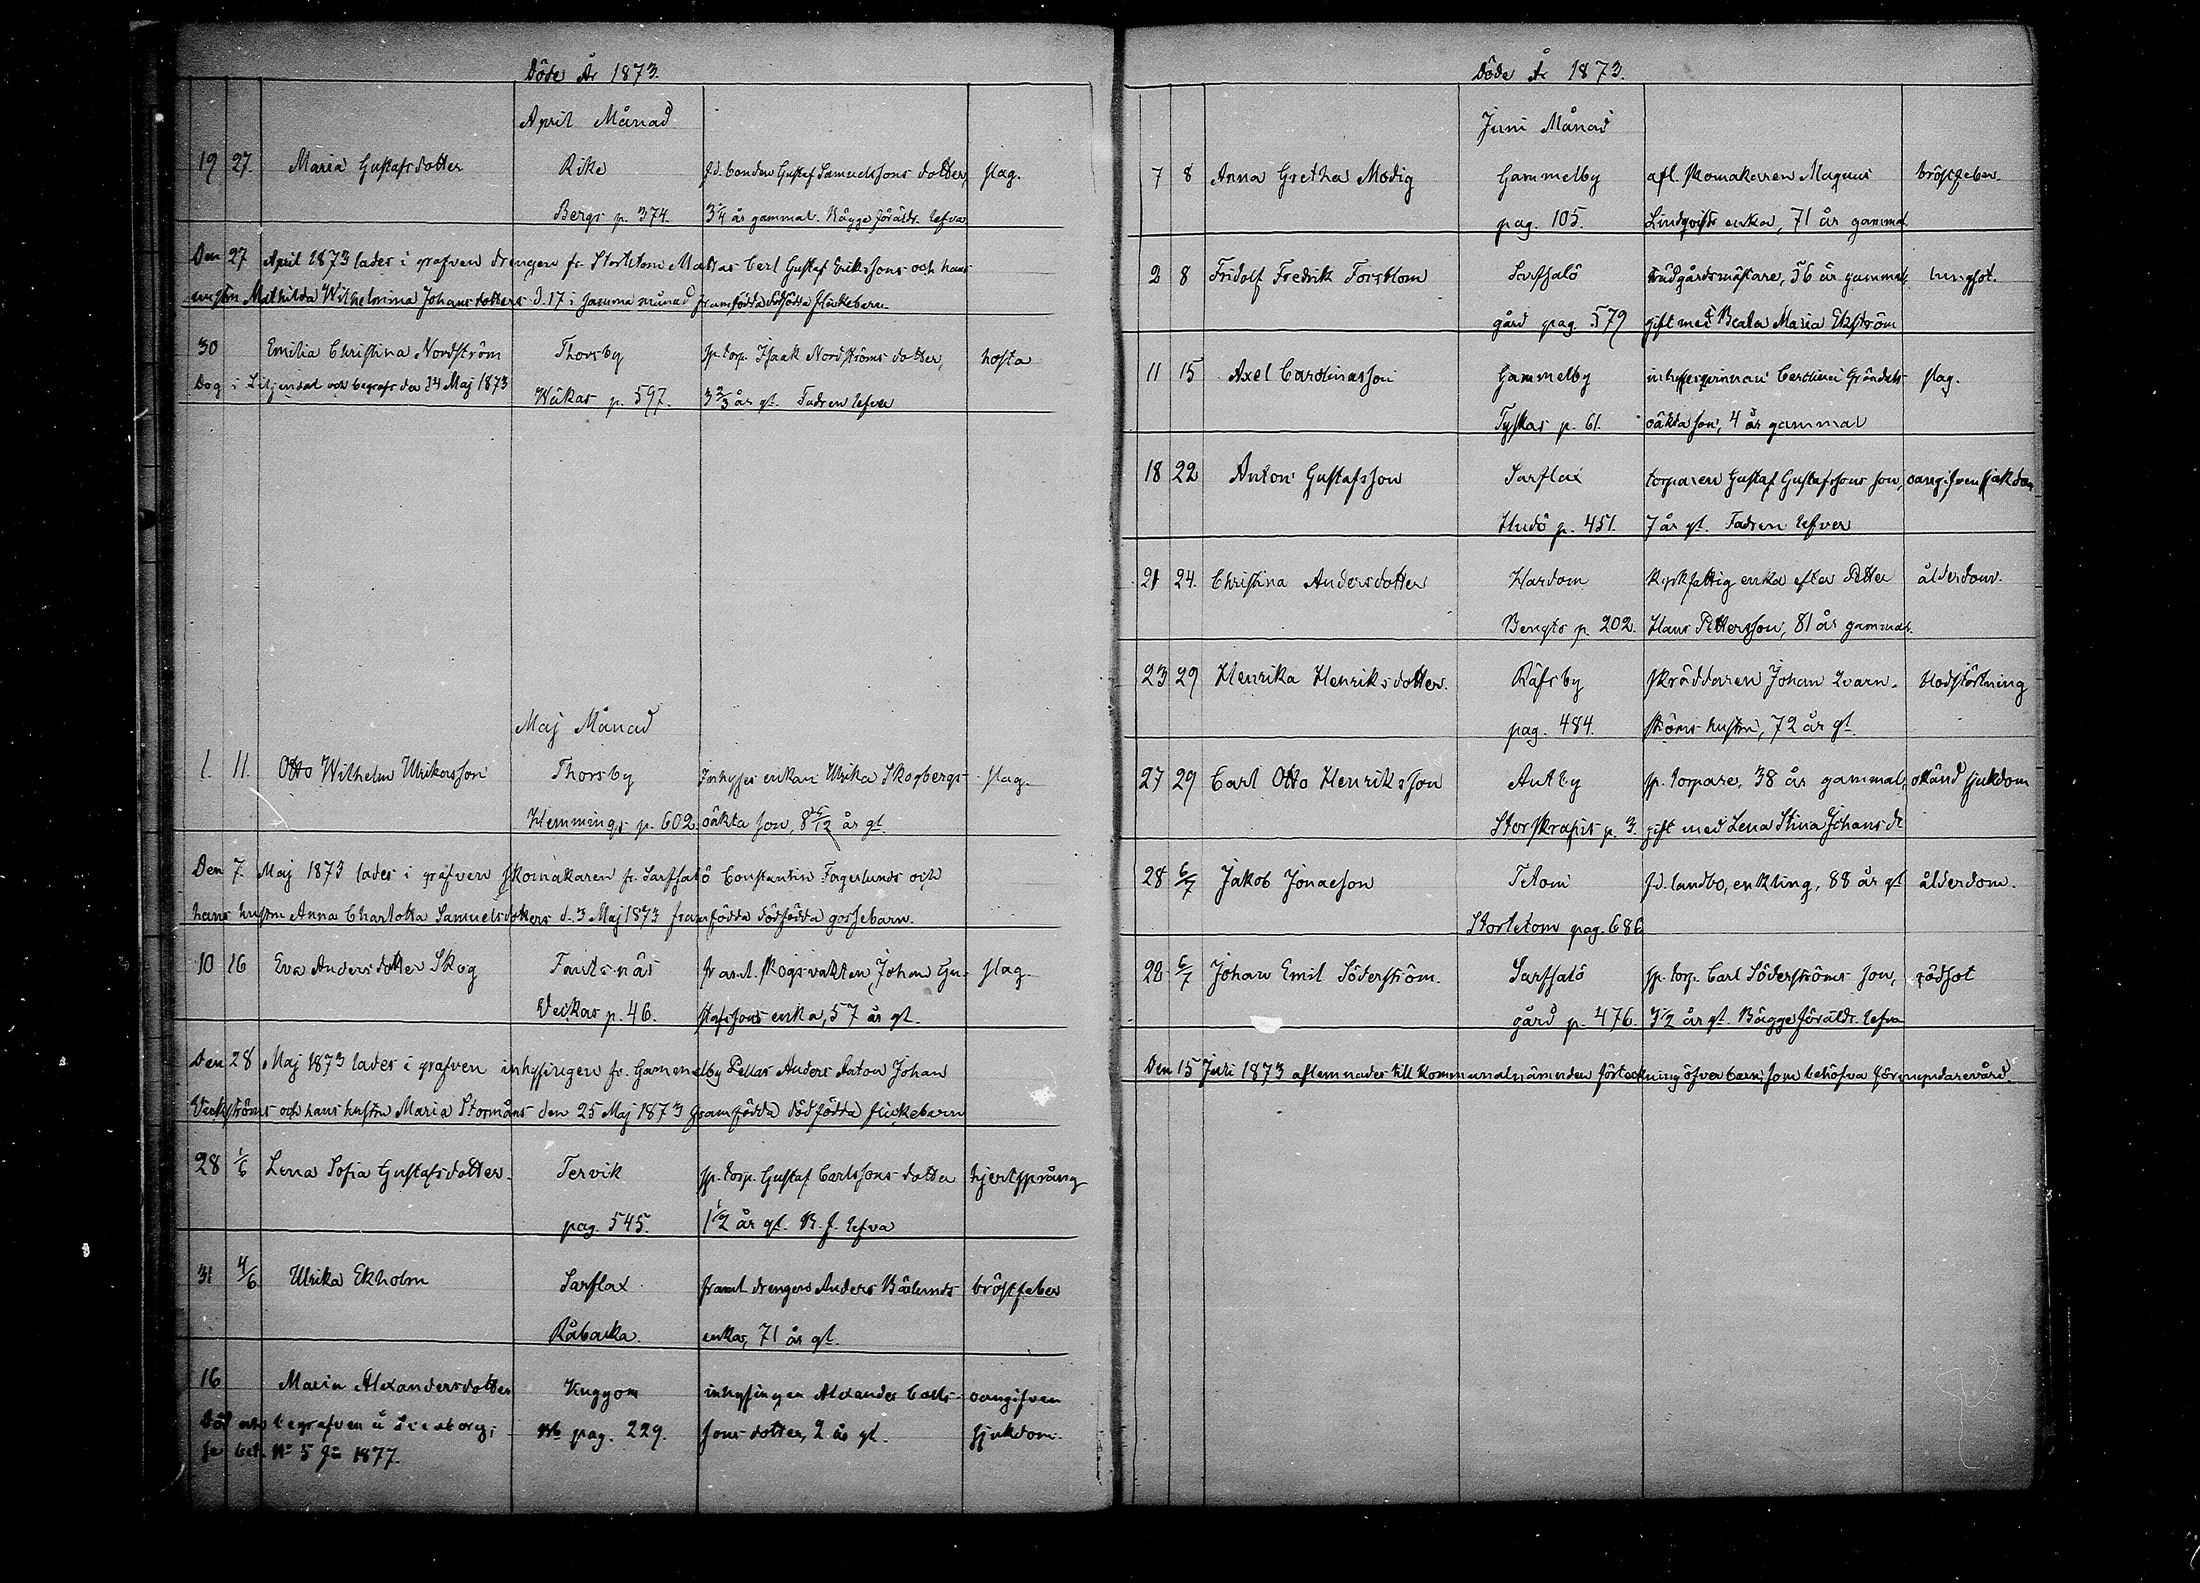 Döde År 1873.
April Månad
19 27. Maria Gustafsdotter Rike f.d. bonden Gustaf Samuelssons dotter, slag.
Bergs p. 374. 3 1/4 år gammal. Bägge föräldr. lefva
Den 27 April 1873 lades i grafven drengen fr. Stortetom Mattas Carl Gustaf Erikssons och hans
hustru Mathilda Wilhelmina Johansdotters d. 17 i samma månad framfödda dödfödda flickebarn
30 Emilia Christina Nordström Thorsby sp. torp. Isaak Nordströms dotter, hosta
Dog i Liljendal och begrafs den 14 Maj 1873 Wåkas p. 597. 3 2/3 år gl. Fadren lefver
Maj Månad
1. 11. Otto Wilhelm Ulrikasson Thorsby Inhyses enkan Ulrika Skogbergs slag.
Hemmings p. 602. oäkta son, 8 /12 år gl.
Den 7. Maj 1873 lades i grafven skomakaren fr. Sarfsalö Constantin Fagerlunds och
hans hustru Anna Charlotta Samuelsdotters d. 3 Maj 1873 framfödda dödfödda gossebarn.
10 16 Eva Andersdotter Skog Fantsnäs framl. skogsvakten Johan Gu- slag.
Veckas p. 46. stafssons enka, 57 år gl.
Den 28 Maj 1873 lades i grafven inhysingen fr. Gammelby Pellas Anders Anton Johan
Veckströms och hans hustru Maria Stormåns den 25 Maj 1873 framfödda dödfödda flickebarn
28 1/6 Lena Sofia Gustafsdotter. Tervik sp. torp. Gustaf Carlssons dotter hjertsprång
pag. 545. 1 1/2 år gl. B. f. lefva
31 4/6 Ulrika Ekholm Sarflax framl. drengens Anders Bärlunds bröstfeber
Råbacka. enka, 71 år gl.
16 Maria Alexandersdotter Kuggom inhysingen Alexander Carls- oangifven
Död och begrafven å Sveaborg, pag. 229. sons dotter, 2 år gl. sjukdom.
se bet. No 5 för 1877.
Döde År 1873.
Juni Månad
7 8 Anna Gretha Modig Gammelby afl. skomakaren Magnus bröstfeber.
pag. 105. Lindqvists enka, 71 år gammal
2 8 Fridolf Fredrik Forsblom Sarfsalö trädgårdsmästare, 56 år gammal, lungsot.
gård pag. 579 gift med Beata Maria Ekström
11 15 Axel Carolinasson Gammelby inhysesqvinnan Carolina Gröndahls slag.
Tyskas p. 61. oäkta son, 4 år gammal
18 22 Anton Gustafsson Sarflax torparen Gustaf Gustafssons son, oangifven sjukdom
Hudö p. 451. 7 år gl. Fadren lefver
21 24. Christina Andersdotter Hardom kyrkfattig enka efter Petter ålderdom.
Bengts p. 202. Hans Pettersson, 81 år gammal.
23 29 Henrika Henriksdotter. Räfsby skräddaren Johan Qvarn- blodstörtning
pag. 484. ströms hustru, 72 år gl.
27 29 Carl Otto Henriksson Antby sp. torpare, 38 år gammal, okänd sjukdom
Storskrapis p. 3. gift med Lena Stina Johansdr
28 6/7 Jakob Jonasson Tetom f.d. landbo, enkling, 88 år gl ålderdom.
Stortetom pag. 686
28 6/7 Johan Emil Söderström. Sarfsalö sp. torp. Carl Söderströms son, rödsot
gård p. 476. 3 1/2 år gl. Bägge föräldr. lefva
Den 15 Juli 1873 aflemnades till kommunalnämnden förteckning öfver barn, som behöfva förmyndarevård.